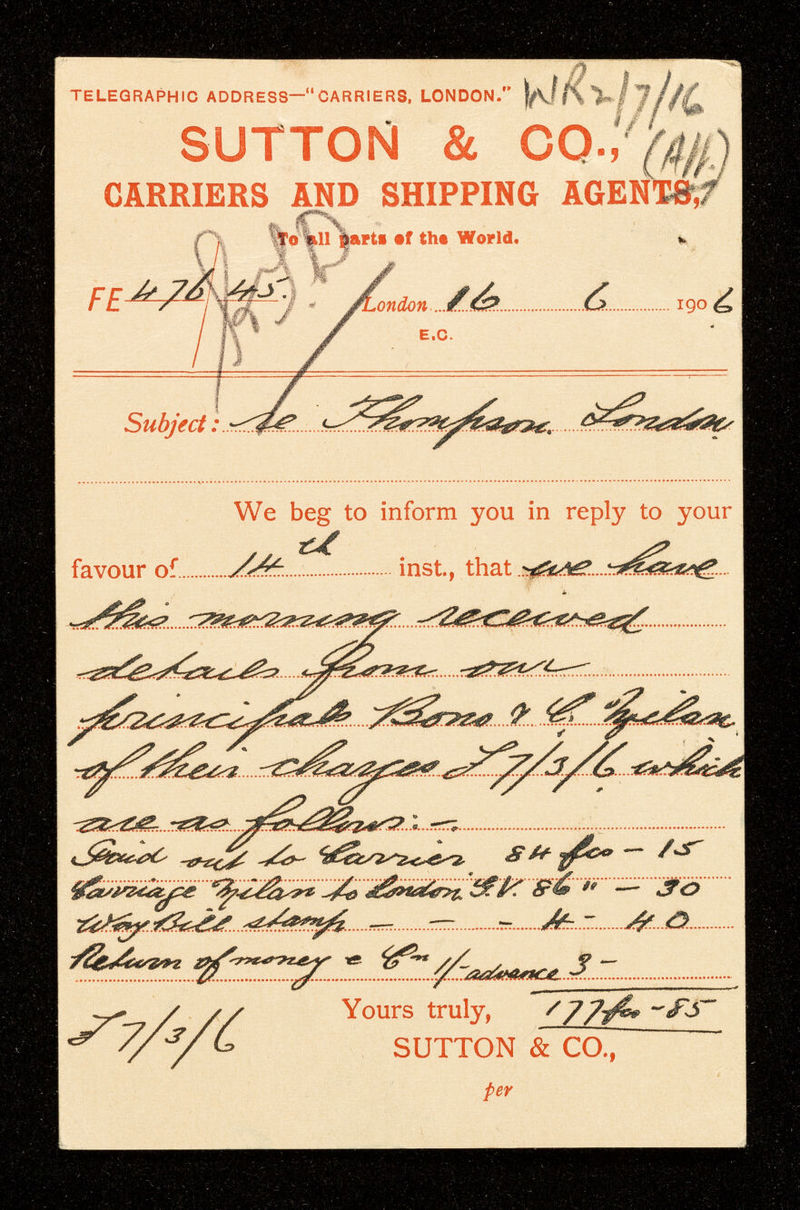 TELEGRAPHIC ADDRESS—"CARRIERS, LONDON."
WR 2/7/16
SUTTON & CO.,
(A/f.)
CARRIERS AND SHIPPING AGENTS,
To all parts of the World.
FE 476/45.
London 16 6 1906
E.C.
Subject: re Thompson. London
We beg to inform you in reply to your
favour of 14th inst., that we have
this morning received
details from our
principals Bono & C. Milan
of their charges £7/3/6 which
are as follows:-
Paid out to Carrier 84 fcs - 15
Carriage Milan to London. G.V. 86 " - 30
Way Bill stamp - - - 4 - 40
Return of money e Cn 1/- advance 3 -
Yours truly, 177 fcs - 85
£7/3/6
SUTTON & CO.,
per